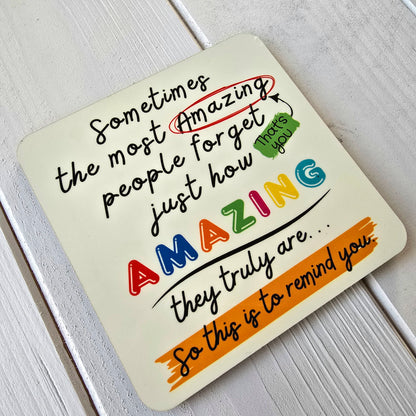 Sometimes
the most Amazing
That's
you
people forget
just how
AMAZING
they truly are...
So this is to remind you.